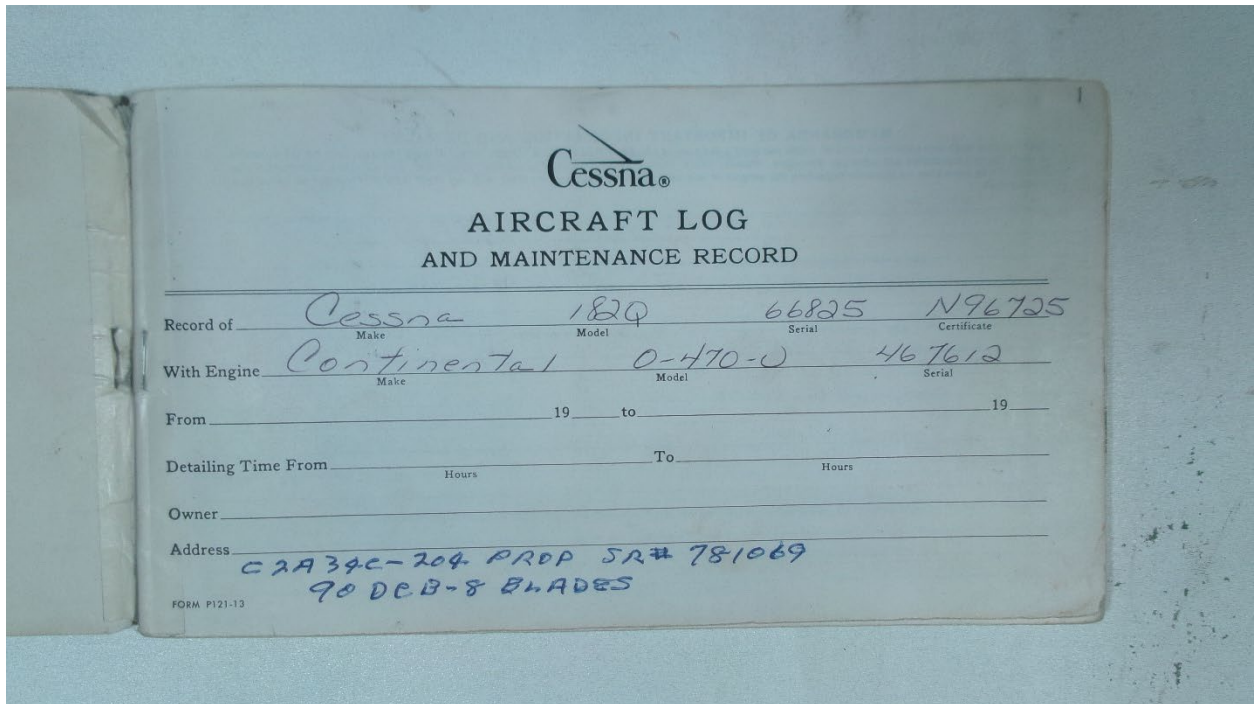 1
Cessna®
AIRCRAFT LOG
AND MAINTENANCE RECORD
Record of Cessna 182Q 66825 N96725
Make Model Serial Certificate
With Engine Continental O-470-U 467612
Make Model Serial
From 19 to 19
Detailing Time From To
Hours Hours
Owner
Address
C2A34C-204 PROP SR# 781069
90 DCB-8 BLADES
FORM P121-13